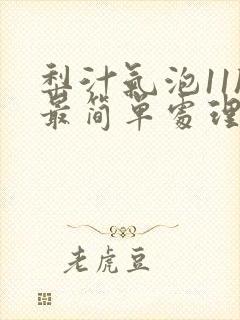 梨汁氣泡11
最简單處理
老虎豆